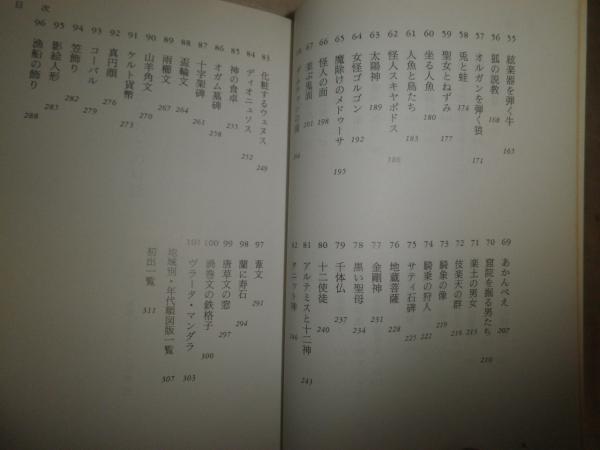 55 絃楽器を弾く牛 165
56 狐の説教 168
57 オルガンを弾く狼 171
58 兎と蛙
59 聖女とねずみ 177
60 坐る人魚 180
61 人魚と鳥たち 183
62 怪人スキヤポドス 186
63 太陽神 189
64 女怪ゴルゴン 192
65 魔除けのメドゥーサ 195
66 怪人の面 198
67 鬼面 201
69 あかんべえ 207
70 窟院を掘る男たち 210
71 楽土の男女 213
72 伎楽天の群 216
73 騎象の像 219
74 騎乗の狩人 222
75 サティ石碑 225
76 地蔵菩薩 228
77 金剛神 231
78 黒い聖母 234
79 千体仏 237
80 十二使徒 240
81 アルテミスと十二神 243
82 タニット神 246
83 化粧するウェヌス 249
84 ディオニュソス 252
85 神の食卓 255
86 オガム墓碑 258
87 十字架碑 261
88 盃輪文 264
89 雨櫛文 267
90 山羊角文 270
91 ケルト貨幣 273
92 真円顔 276
93 コーバル 279
94 笠飾り 282
95 影絵人形 285
96 漁船の飾り 288
目次
97 葦文 291
98 蘭に寿石 294
99 唐草文の窓 297
100 渦巻文の鉄格子 300
101 ヴラータ・マンダラ 303
地域別・年代順図版一覧 307
初出一覧 311